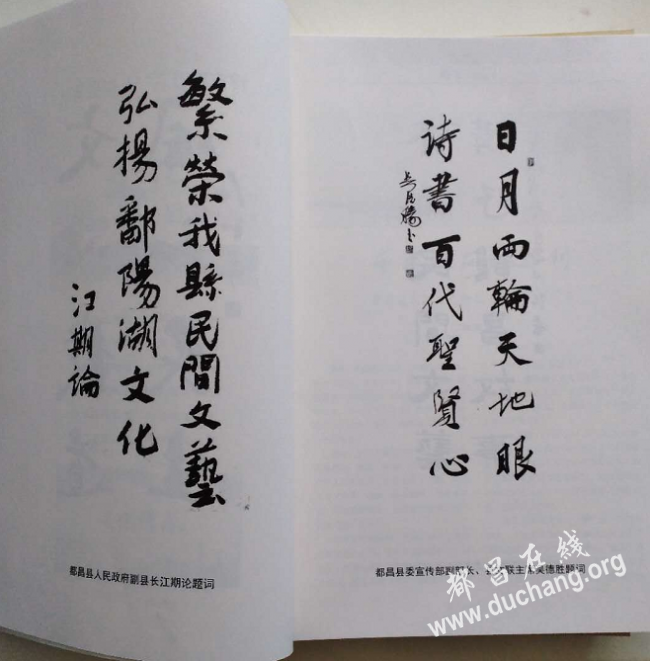 繁榮我縣民間文藝
弘揚鄱陽湖文化
江期論
都昌县人民政府副县长江期论题词
日月兩輪天地眼
詩書百代聖賢心
都昌县委宣传部副部长、县文联主席吴德胜题词
都昌在线
www.duchang.net